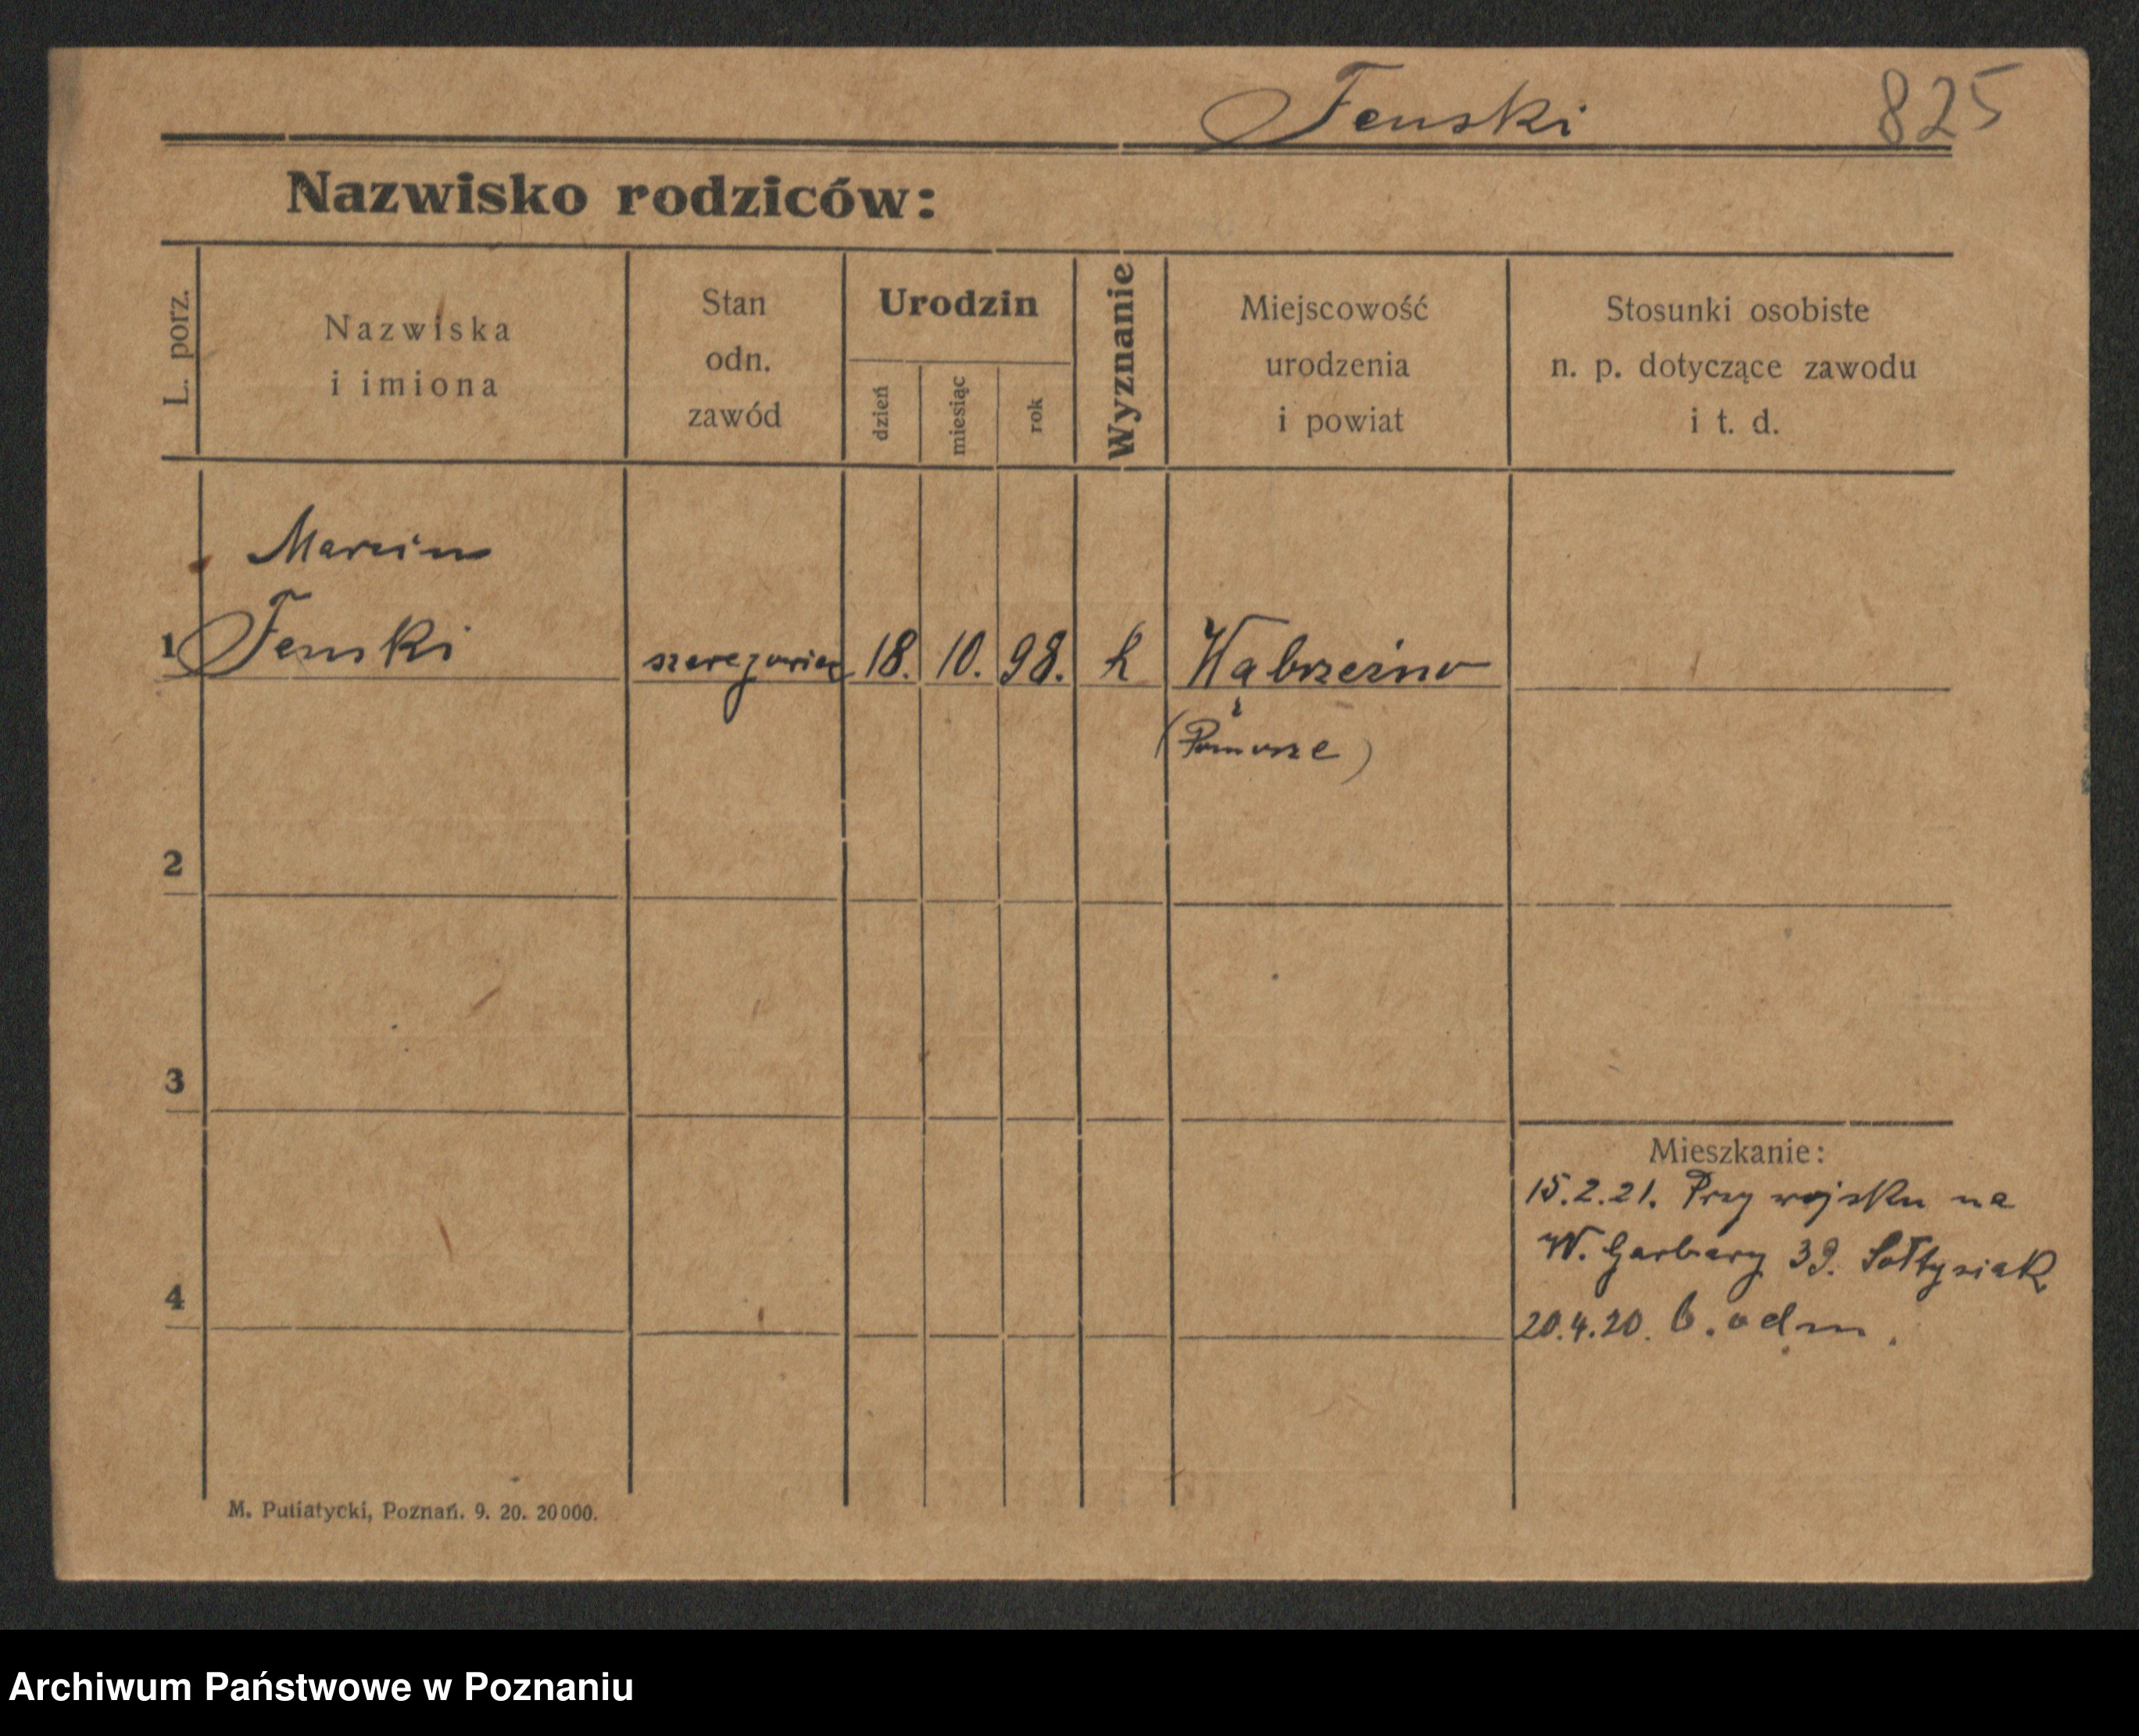 Fenski 825
Nazwisko rodziców:
L. porz.
Nazwiska
i imiona
Stan
odn.
zawód
Urodzin
dzień
miesiąc
rok
Wyznanie
Miejscowość
urodzenia
i powiat
Stosunki osobiste
n. p. dotyczące zawodu
i t. d.
Marcin
1 Fenski szeregowiec 18. 10. 98. k Wąbrzeźno
(Pomorze)
2
3
4
Mieszkanie:
15.2.21. Przy wojsku na
W. Garbary 39. Sołtysiak
20.4.20. b. adm.
M. Putiatycki, Poznań. 9. 20. 20000.
Archiwum Państwowe w Poznaniu